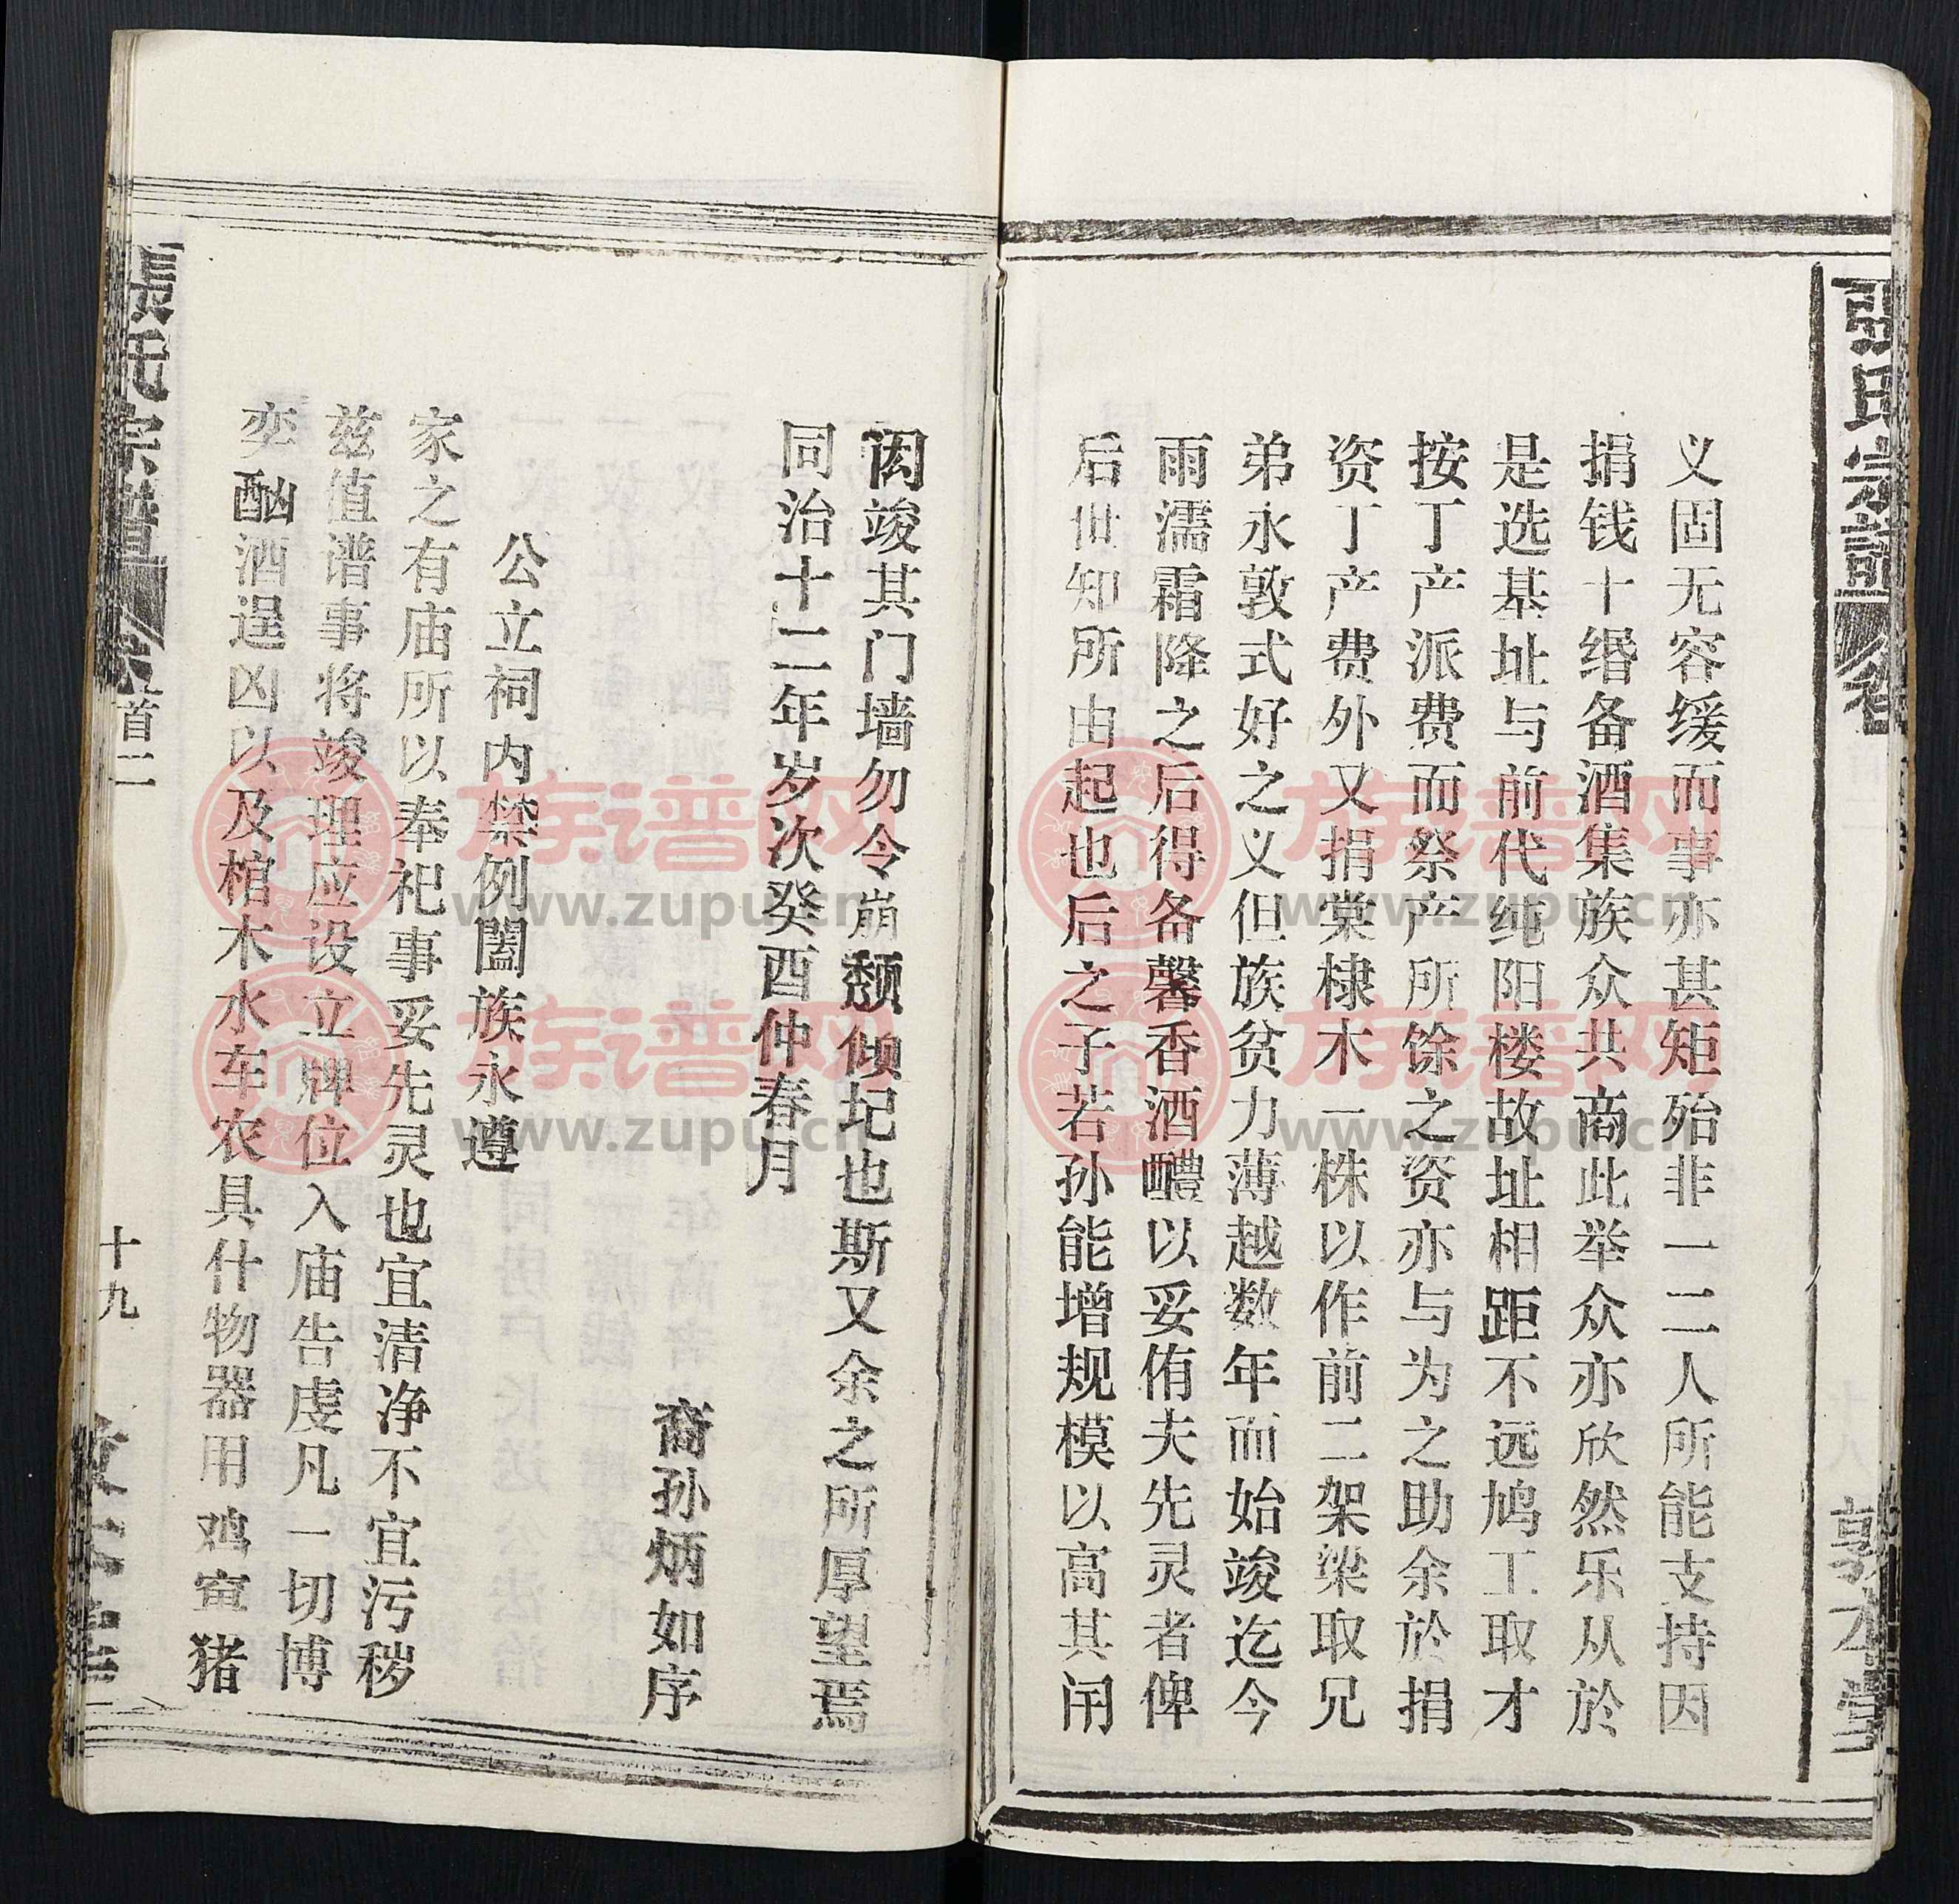 張氏宗譜
卷
敦本堂
义固无容缓而事亦甚矩殆非一二人所能支持因
捐钱十缗备酒集族众共商此举众亦欣然乐从於
是选基址与前代纯阳楼故址相距不远鸠工取才
按丁产派费而祭产所馀之资亦与为之助余於捐
资丁产费外又捐棠棣木一株以作前二架梁取兄
弟永敦式好之义但族贫力薄越数年而始竣迄今
雨濡霜降之后得备馨香酒醴以妥侑夫先灵者俾
后世知所由起也后之子若孙能增规模以高其闬
闳竣其门墙勿令崩颓倾圮也斯又余之所厚望焉
同治十二年岁次癸酉仲春月
裔孙炳如序
公立祠内禁例阖族永遵
家之有庙所以奉祀事妥先灵也宜清净不宜污秽
兹值谱事将竣理应设立牌位入庙告虔凡一切博
奕酗酒逞凶以及棺木水车农具什物器用鸡窜猪
張氏宗譜
卷首二
十九
敦本堂
族谱网
www.zupu.cn
族谱网
www.zupu.cn
族谱网
www.zupu.cn
族谱网
www.zupu.cn